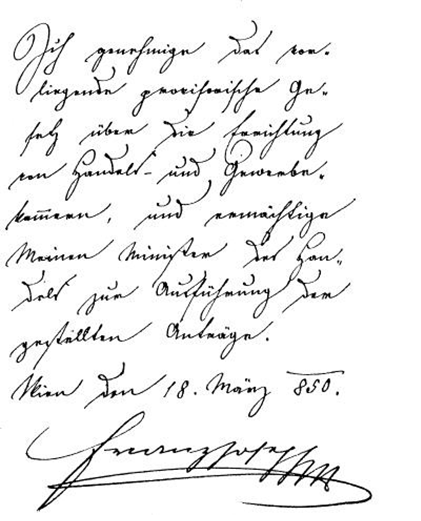 Ich genehmige das vor-
liegende provisorische Ge-
setz über die Errichtung
von Handels- und Gewerbe-
kam̅ern, und ermächtige
Meinen Minister des Han-
dels zur Ausführung der
gestellten Anträge.
Wien den 18. März 850.
Franz Joseph